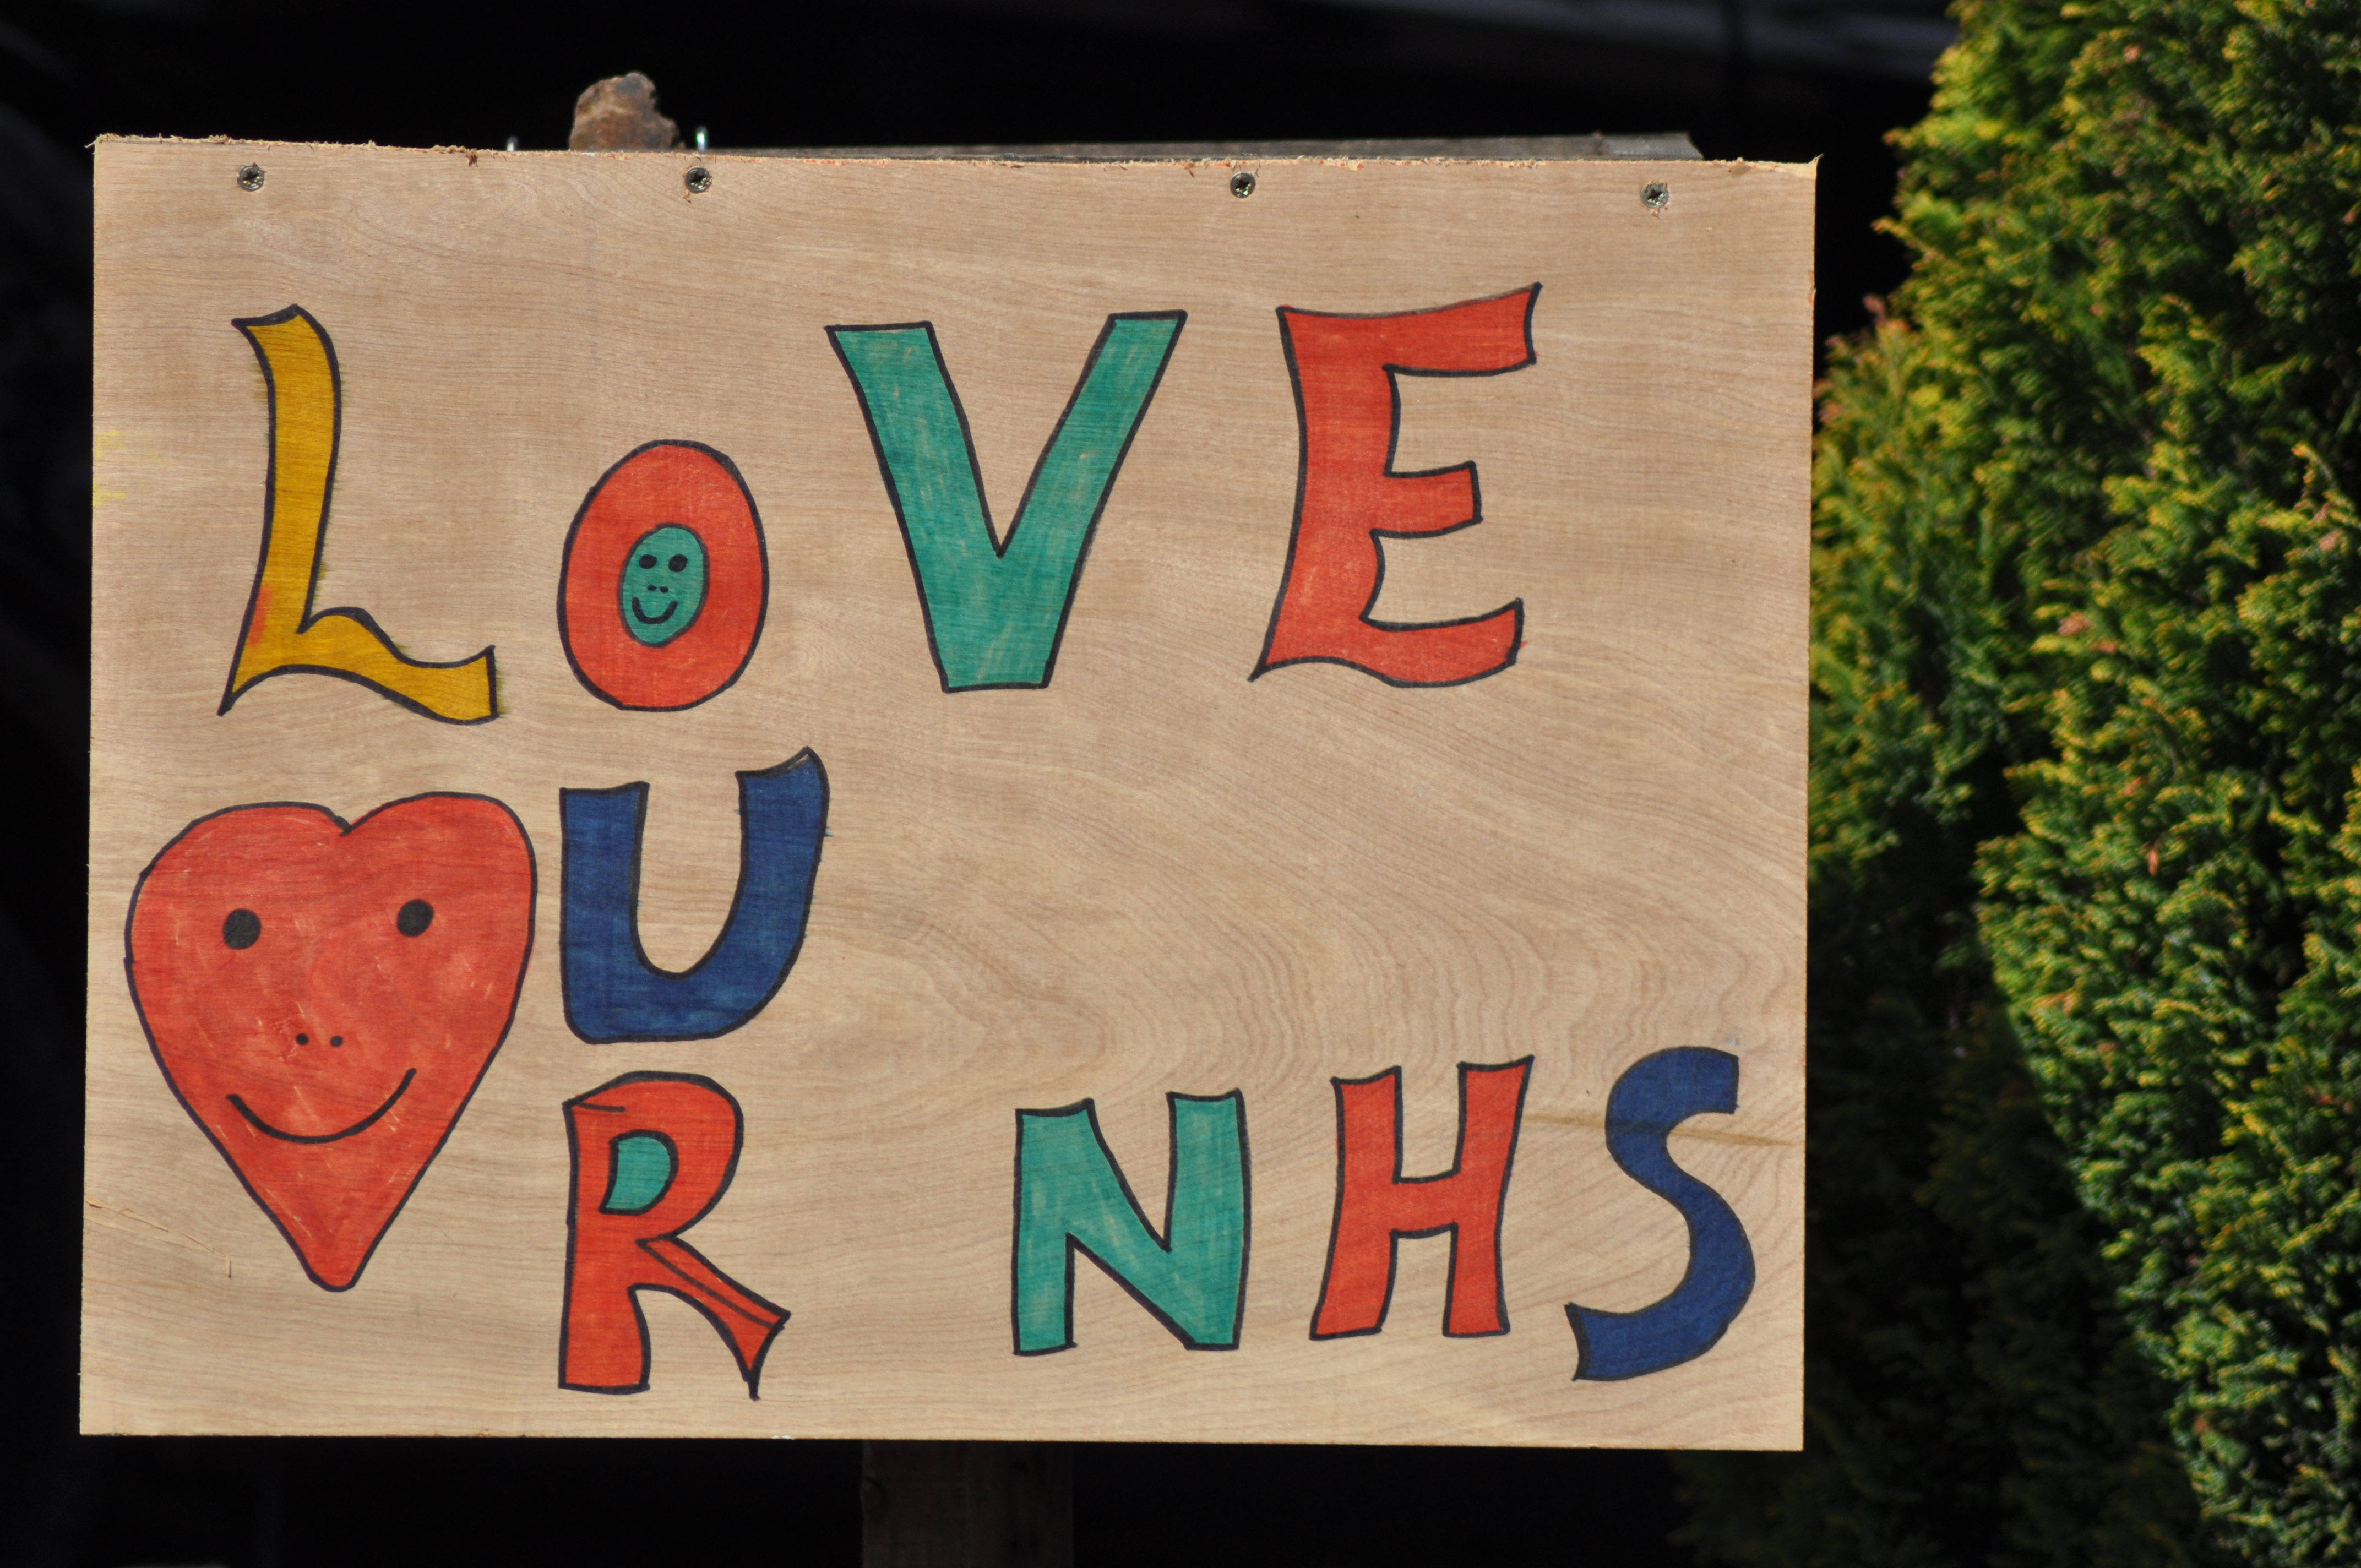 LOVE
U
R NHS